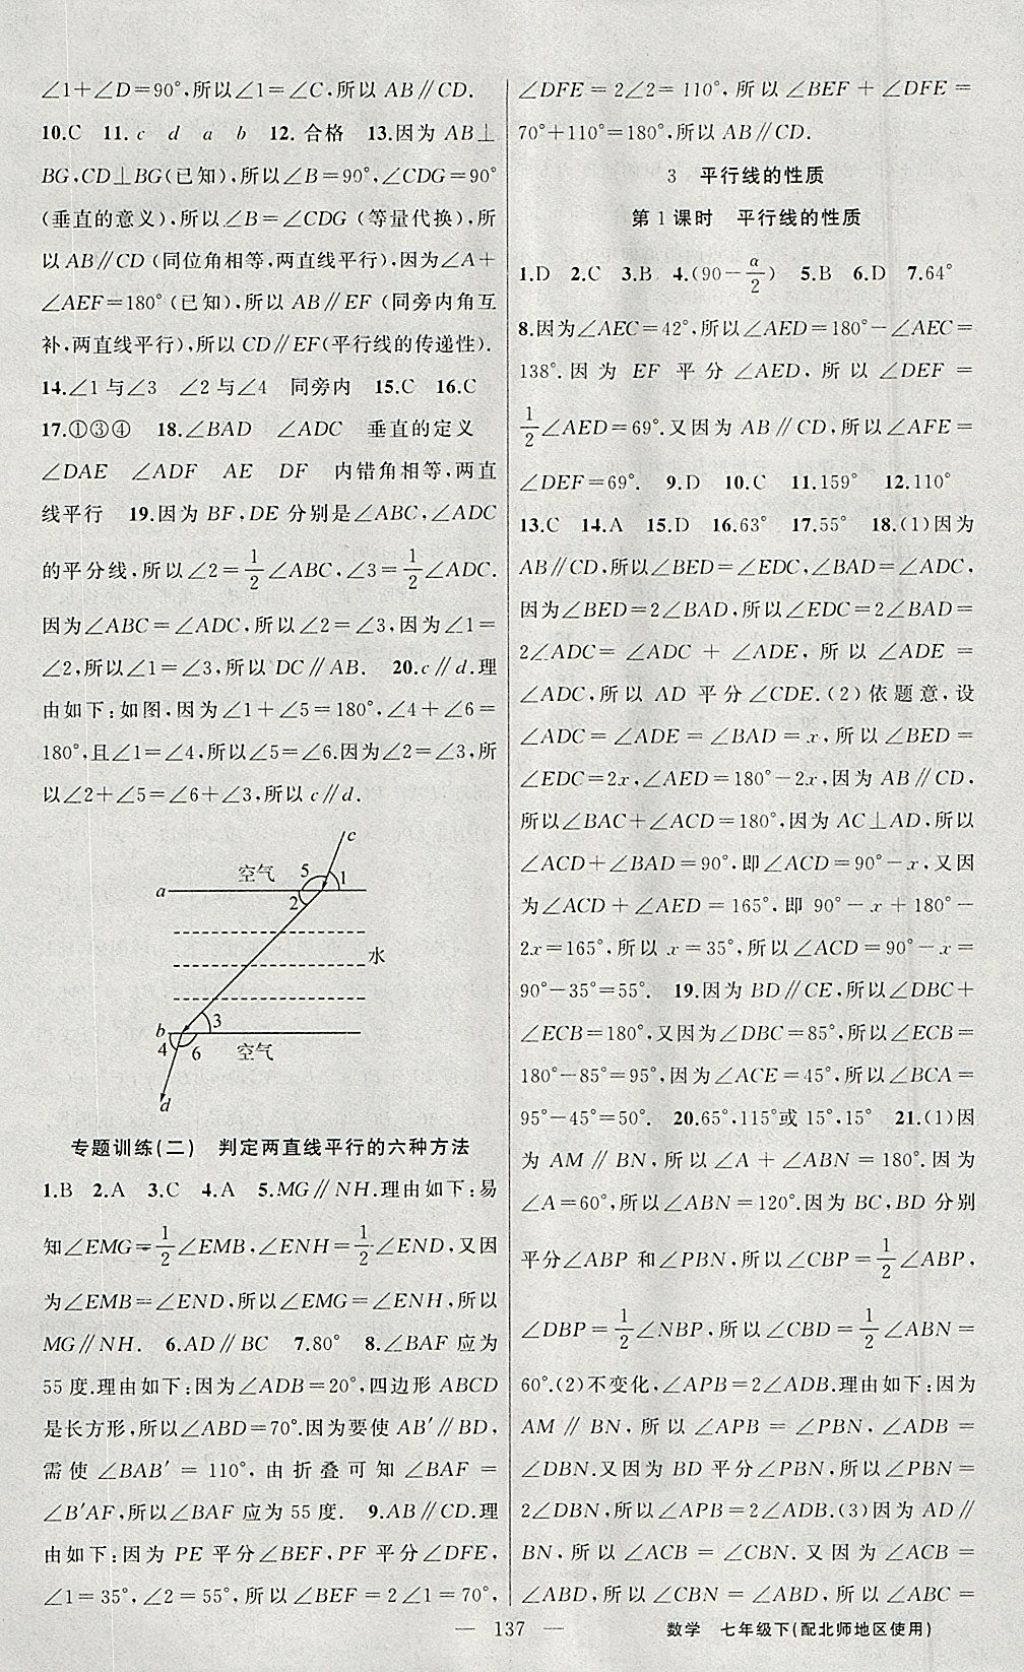 ∠1+∠D=90°,所以∠1=∠C,所以 AB∥CD.
10.C 11.c d a b 12.合格 13.因为 AB⊥
BG,CD⊥BG(已知),所以∠B=90°,∠CDG=90°
(垂直的意义),所以∠B=∠CDG (等量代换),所
以AB∥CD(同位角相等,两直线平行),因为∠A+
∠AEF=180°(已知),所以 AB∥EF (同旁内角互
补,两直线平行),所以 CD∥EF(平行线的传递性).
14.∠1 与∠3 ∠2 与∠4 同旁内 15.C 16.C
17.①③④ 18.∠BAD ∠ADC 垂直的定义
∠DAE ∠ADF AE DF 内错角相等,两直
线平行 19.因为 BF,DE 分别是∠ABC,∠ADC
的平分线,所以∠2=1/2∠ABC,∠3=1/2∠ADC.
因为∠ABC=∠ADC,所以∠2=∠3,因为∠1=
∠2,所以∠1=∠3,所以 DC∥AB. 20.c∥d.理
由如下:如图,因为∠1+∠5=180°,∠4+∠6=
180°,且∠1=∠4,所以∠5=∠6.因为∠2=∠3,所
以∠2+∠5=∠6+∠3,所以 c∥d.
c
空气 5 1
a
2
水
b 3
4 6 空气
d
专题训练(二) 判定两直线平行的六种方法
1.B 2.A 3.C 4.A 5.MG∥NH.理由如下:易
知∠EMG=1/2∠EMB,∠ENH=1/2∠END,又因
为∠EMB=∠END,所以∠EMG=∠ENH,所以
MG∥NH. 6.AD∥BC 7.80° 8.∠BAF应为
55 度.理由如下:因为∠ADB=20°,四边形 ABCD
是长方形,所以∠ABD=70°.因为要使 AB′∥BD,
需使∠BAB′=110°,由折叠可知∠BAF=
∠B′AF,所以∠BAF 应为 55 度. 9.AB∥CD.理
由如下:因为 PE 平分∠BEF,PF 平分∠DFE,
∠1=35°,∠2=55°,所以∠BEF=2∠1=70°,
∠DFE=2∠2=110°,所以∠BEF+∠DFE=
70°+110°=180°,所以 AB∥CD.
3 平行线的性质
第 1 课时 平行线的性质
1.D 2.C 3.B 4.(90-α/2) 5.B 6.D 7.64°
8.因为∠AEC=42°,所以∠AED=180°-∠AEC=
138°.因为 EF 平分∠AED,所以∠DEF=
1/2∠AED=69°.又因为 AB∥CD,所以∠AFE=
∠DEF=69°. 9.D 10.C 11.159° 12.110°
13.C 14.A 15.D 16.63° 17.55° 18.(1)因为
AB∥CD,所以∠BED=∠EDC,∠BAD=∠ADC,
因为∠BED=2∠BAD,所以∠EDC=2∠BAD=
2∠ADC=∠ADC+∠ADE,所以∠ADE=
∠ADC,所以 AD 平分∠CDE.(2)依题意,设
∠ADC=∠ADE=∠BAD=x,所以∠BED=
∠EDC=2x,∠AED=180°-2x,因为 AB∥CD,
所以∠BAC+∠ACD=180°,因为 AC⊥AD,所以
∠ACD+∠BAD=90°,即∠ACD=90°-x,又因
为∠ACD+∠AED=165°,即 90°-x+180°-
2x=165°,所以 x=35°,所以∠ACD=90°-x=
90°-35°=55°. 19.因为 BD∥CE,所以∠DBC+
∠ECB=180°,又因为∠DBC=85°,所以∠ECB=
180°-85°=95°,因为∠ACE=45°,所以∠BCA=
95°-45°=50°. 20.65°,115°或 15°,15° 21.(1)因
为 AM∥BN,所以∠A+∠ABN=180°.因为
∠A=60°,所以∠ABN=120°.因为 BC,BD 分别
平分∠ABP 和∠PBN,所以∠CBP=1/2∠ABP,
∠DBP=1/2∠NBP,所以∠CBD=1/2∠ABN=
60°.(2)不变化,∠APB=2∠ADB.理由如下:因为
AM∥BN,所以∠APB=∠PBN,∠ADB=
∠DBN.又因为 BD 平分∠PBN,所以∠PBN=
2∠DBN,所以∠APB=2∠ADB.(3)因为 AD∥
BN,所以∠ACB=∠CBN.又因为∠ACB=
∠ABD,所以∠CBN=∠ABD,所以∠ABC=
— 137 —
数学 七年级下(配北师地区使用)